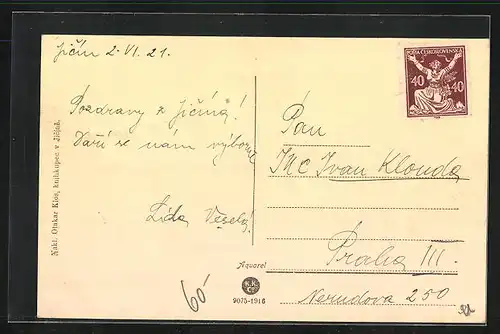 Jičín 2. VI. 21.
Pozdravy z Jičína!
Daří se nám výborně
Lída Veselá
Nakl. Otakar Klos, knihkupec v Jičíně.
POŠTA ČESKOSLOVENSKÁ
40 40
Pan
Ivan Klouda
Praha III.
Nerudova 250
Aquarel
K.K.
9075-1916
60